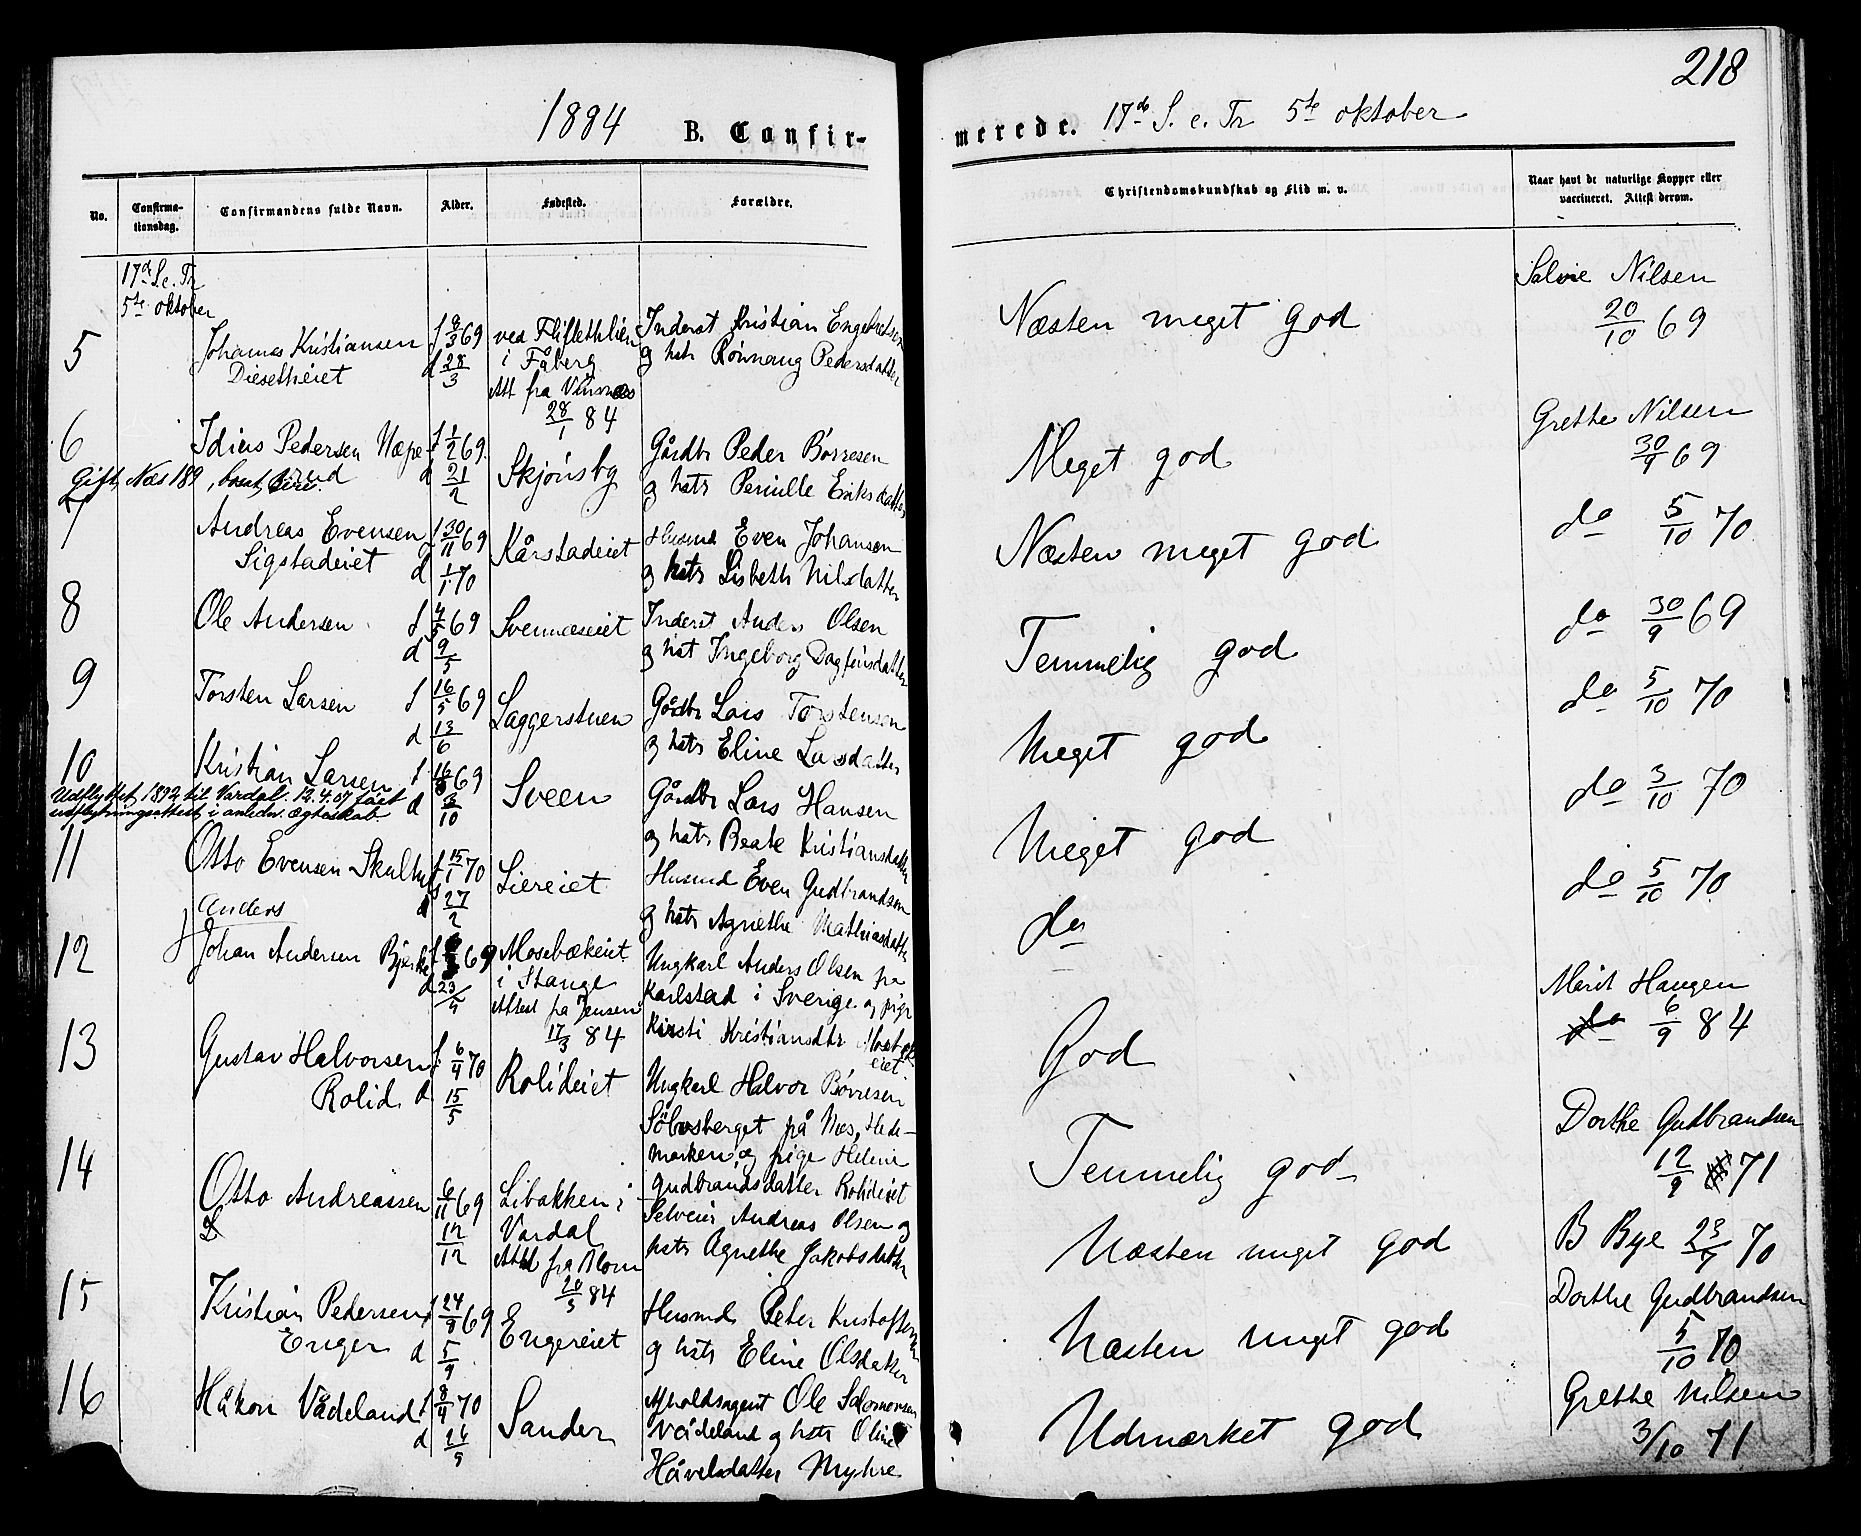 218
1884 B. Confir-
merede. 17de S. e. Tr 5te oktober
No.
Confirma-
tionsdag.
Confirmandens fulde Navn.
Alder.
Fødested.
Forældre.
Christendomskundskab og Flid m. v.
Naar havt de naturlige Kopper eller
vaccineret. Attest derom.
17de S. e. Tr
5te oktober
5
Johannes Kristiansen
f 8/3 69
d 28/3
i Fåberg
Att fra
28/1 84
Inderst Kristian Engebretsen
og hstr Rönnaug Pedersdatter
Næsten meget god
Nilsen
20/10 69
6
Idius Pedersen Næpe
rud
f 1/2 69
d 21/2
Skjönsby
Gårdbr Peder Börresen
og hstr Pernille Eriksdatter
Meget god
Grethe Nilsen
30/9 69
Gift, Næs 189
7
Andreas Evensen
Sigstadeiet
f 30/11 69
d 1/1 70
Kårstadeiet
Husmd Even Johansen
og hstr Lisbeth Nilsdatter
Næsten meget god
do 5/10 70
8
Ole Andersen
f 4/5 69
d 9/5
Svennæseiet
Inderst Anders Olsen
og hst Ingeborg Dagfinsdatter
Temmelig god
do 30/9 69
9
Torsten Larsen
f 16/5 69
d 13/6
Laggerstuen
Gårdbr Lars Torstensen
og hstr Eline Larsdatter
Meget god
do 5/10 70
10
Kristian Larsen
f 16/8 69
d 3/10
Sveen
Gårdbr Lars Hansen
og hstr Beate Kristiansdatter
Meget god
do 3/10 70
Udflyttet 1892 til Vardal. 12.4.07 fået
udflytningsattest i anledn. ægteskab
11
Otto Evensen Skulhus
f 15/1 70
d 27/2
Liereiet
Husmd Even Gudbrandsen
og hstr Agnethe Mathiasdattr
do
do 5/10 70
12
Anders
Johan Andersen Bjerke
69
d 23/4
Mosebækeiet
i Stange
Attest fra Jensen
17/3 84
Ungkarl Anders Olsen fra
Karlstad i Sverige og pige
Kirsti Kristiansdtr
eiet
God
Marit Haugen
do 6/9 84
13
Gustav Halvorsen
Rolid
f. 6/4 70
d 15/5
Rolideiet
Ungkarl Halvor Börresen
Sölvsberget på Næs, Hede-
marken, og pige Helene
Gudbrandsdatter Rolideiet
Temmelig god
Dorthe Gudbrandsen
12/9 71
14
Otto Andreassen
6/11 69
12/12
Libakken i
Vardal
Attst fra Blom
20/3 84
Selveier Andreas Olsen og
hstr Agnethe Jakobsdatter
Næsten meget god
B Bye 23/7 70
15
Kristian Pedersen
Enger
f 24/9 69
d 5/9
Engereiet
Husmd Peter Gustafsen
og hstr Eline Olsdatter
Næsten meget god
Dorthe Gudbrandsen
5/10 70
16
Håkon Vådeland
f 8/4 70
d 26/9
Sander
Afholdsagent Ole Salomonsen
Vådeland og hstr Oline
Håvelsdatter Myhre
Udmærket god
Grethe Nilsen
3/10 71